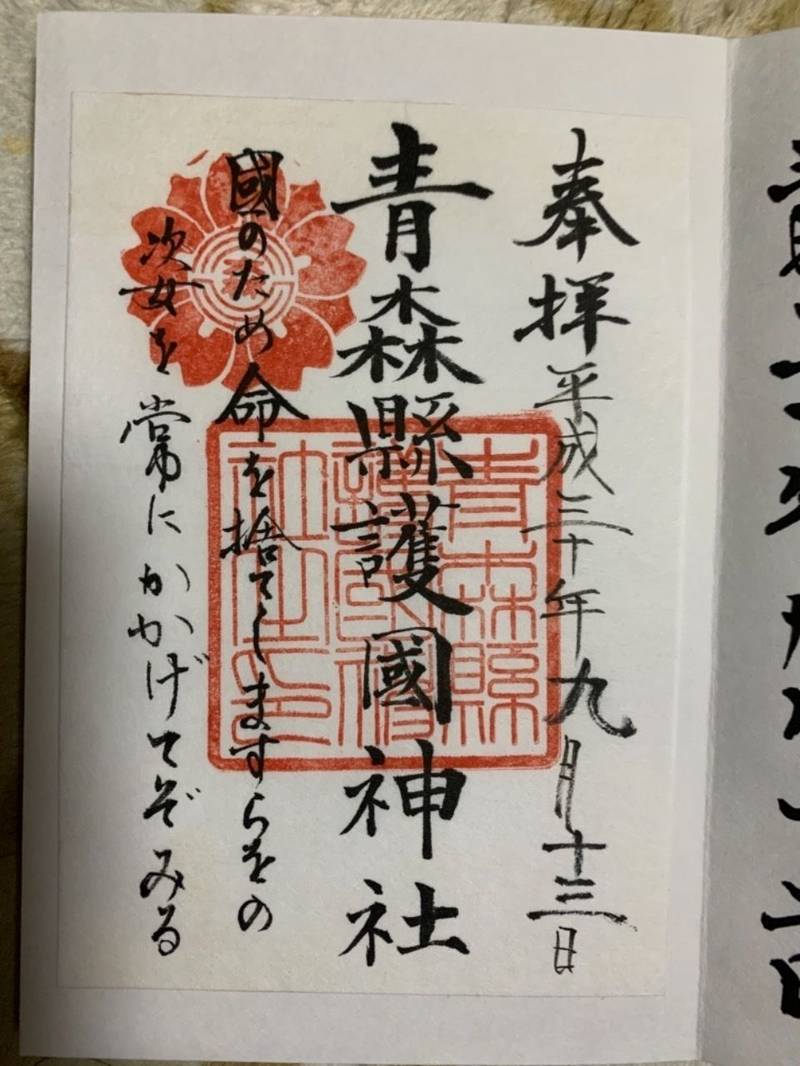 奉拝 平成三十年九月十三日
青森縣護國神社
國のため命を捨てしますらをの
姿を常にかかげてぞみる
青森縣
護國神
社之印